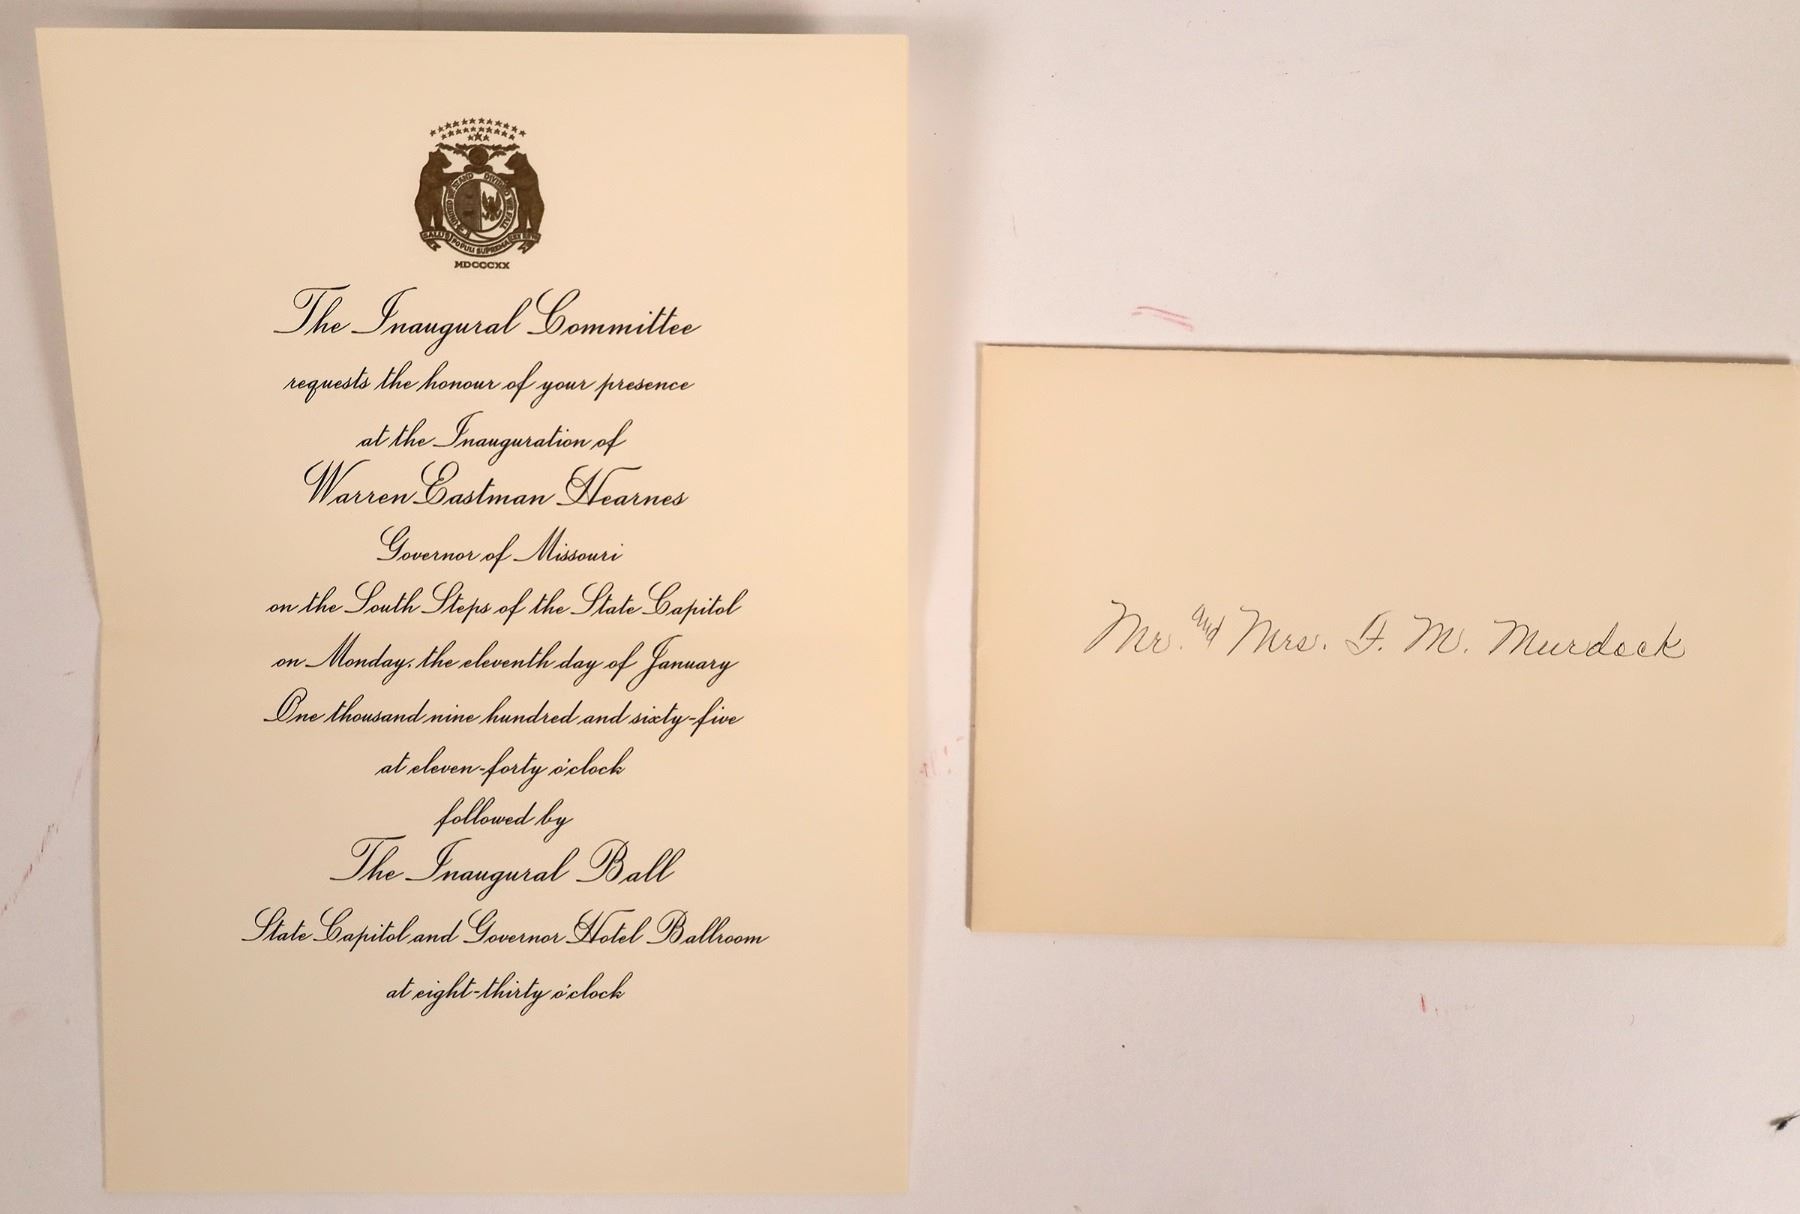 UNITED WE STAND DIVIDED WE FALL
SALUS POPULI SUPREMA LEX ESTO
MDCCCXX
The Inaugural Committee
requests the honour of your presence
at the Inauguration of
Warren Eastman Hearnes
Governor of Missouri
on the South Steps of the State Capitol
on Monday, the eleventh day of January
One thousand nine hundred and sixty-five
at eleven-forty o'clock
followed by
The Inaugural Ball
State Capitol and Governor Hotel Ballroom
at eight-thirty o'clock
Mr. and Mrs. F. M. Murdock